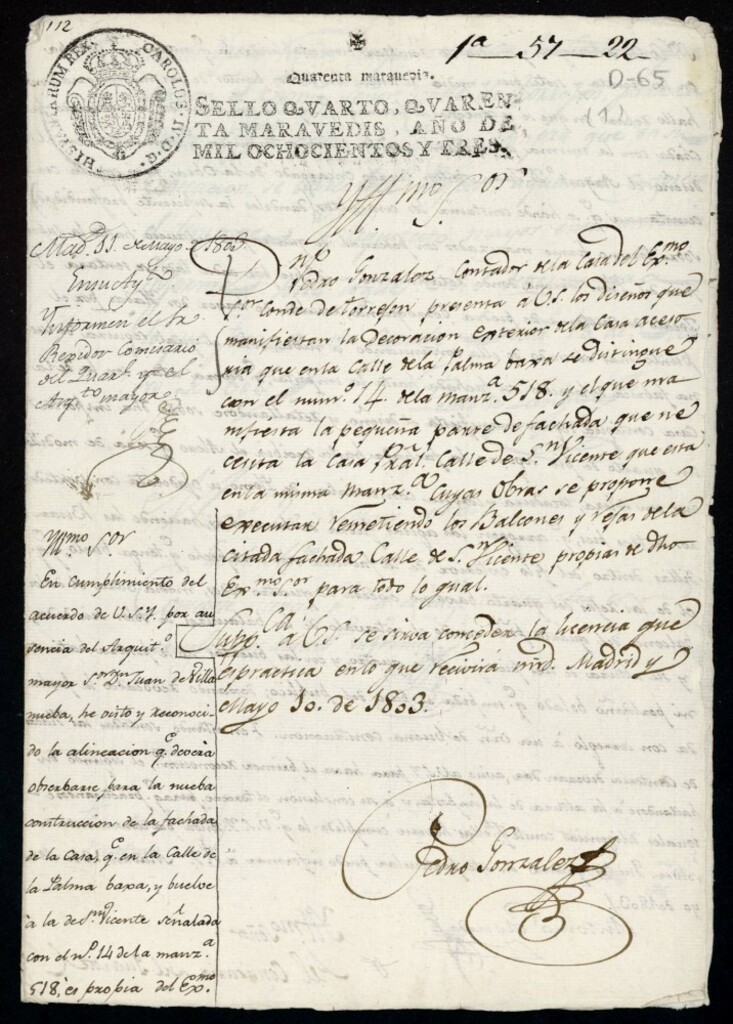 112
HISPANIARUM REX. CAROLUS IV. D. G.
1ª 57 22
D-65
(1)
Quarenta maravedis.
SELLO QVARTO, QVAREN-
TA MARAVEDIS, AÑO DE
MIL OCHOCIENTOS Y TRES.
Yllmo Sor
Dn Pedro Gonzalez Contador de la Casa del Exmo
Sor Conde de Torrejon presenta á VS. los diseños que
manifiestan la Decoracion exterior de la Casa aceso
ria que en la Calle de la Palma baxa se distingue
con el numº 14. de la manzª 518. y el que ma
nifiesta la pequeña parte de fachada que ne
cesita la Casa pral. Calle de Sn Vicente que esta
en la misma Manzª Cuyas Obras se propone
executar remetiendo los Balcones y rejas de la
citada fachada Calle de Sn Vicente propias de dho
Exmo Sor para todo lo qual.
Suppca a VS. se sirva conceder la licencia que
es practica en lo que recivirá mrd. Madrid y
Mayo 10. de 1803.
Pedro Gonzalez
Madd 11 de Mayo de 1803
En su Aytº
Ynformen el Sr
Regidor Comisario
del Quartl y el
Arqtº mayor
Yllmo Sor
En cumplimiento del
acuerdo de V.S.Y. por au
sencia del Arquitº
mayor Sor Dn Juan de Villa
nueba, he visto y reconoci
do la alineacion qe deverá
obserbarse para la nueba
construccion de la fachada
de la Casa, qe en la Calle de
la Palma baxa, y buelve
à la de Sn Vicente señalada
con el nº 14 de la manzª
518, es propia del Exmo